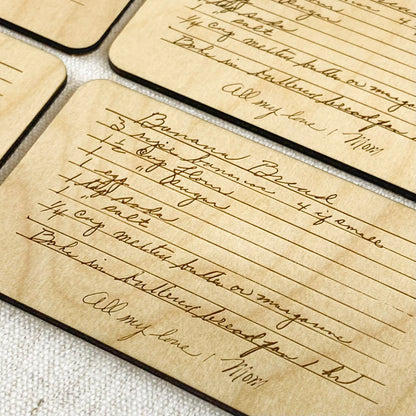 Sugar
soda
salt
1/4 cup melted butter or margarine
Bake in buttered bread pan
All my love, Mom
Banana Bread
3 ripe bananas 4 if small
1 1/2 cup flour
1 Sugar
1 egg
1 tsp soda
1 salt
1/4 cup melted butter or margarine
Bake in buttered bread pan 1 hr
All my love, Mom